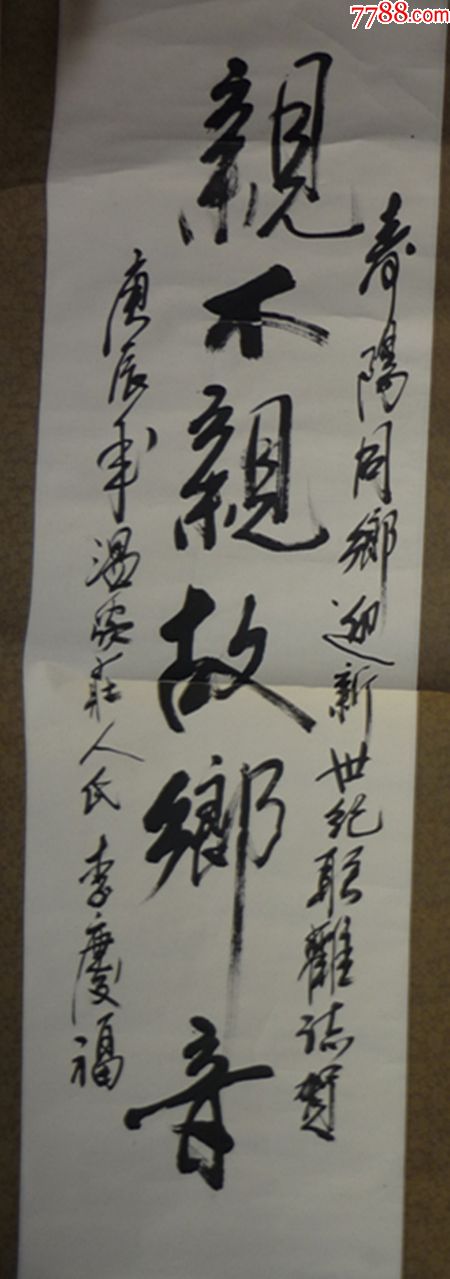 7788.com
壽陽同鄉迎新世紀聯歡誌賀
親不親故鄉音
庚辰年溫家莊人氏李慶福